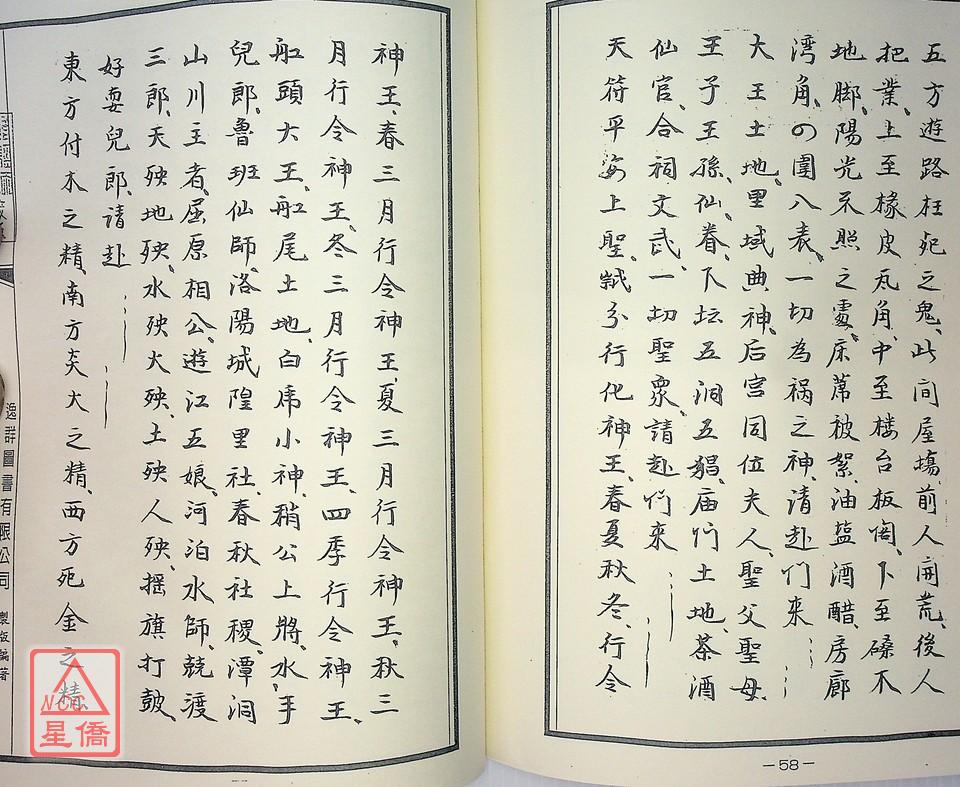 五方遊路枉死之鬼、此间屋塲、前人開荒、後人
把業、上至椽皮瓦角、中至楼台板阁、卜至磉不
地脚、陽光不照之處、床蓆被絮、油盐酒醋、房廊
湾角、の圍八表、一切為祸之神、清赴们来
大王土地、里域典神、后宫同位夫人、聖父聖母、
王子王孫、仙眷、卞坛五洞五猖、庙们土地、茶酒
仙官、合祠文武、一切聖眾、請赴们来
天符平 上聖、 分行化神王、春夏秋冬、行令
—58—
神王、春三月行令神王、夏三月行令神王、秋三
月行令神王、冬三月行令神王、四季行令神王、
舡頭大王、舡尾土地、白席小神、稍公上將、水手
兒郎、魯班仙師、洛陽城隍里社、春秋社稷、潭洞
山川主者、屈原相公、遊江五娘、河泊水師、競渡
三郎、天殃地殃、水殃火殃、土殃人殃、摇旗打鼓、
好耍兒郎、請赴
東方付木之精、南方炎火之精、西方死金之精、
逸群圖書有限公司 製版編著
NCC
星僑